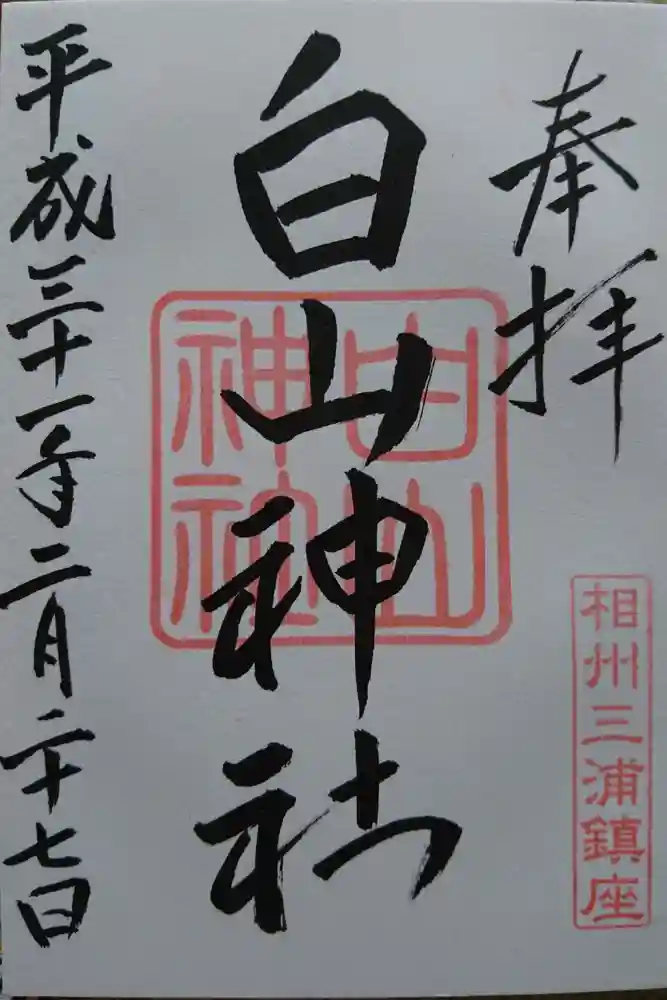 奉拝
相州三浦鎮座
白山神社
白山神社
平成三十一年二月二十七日